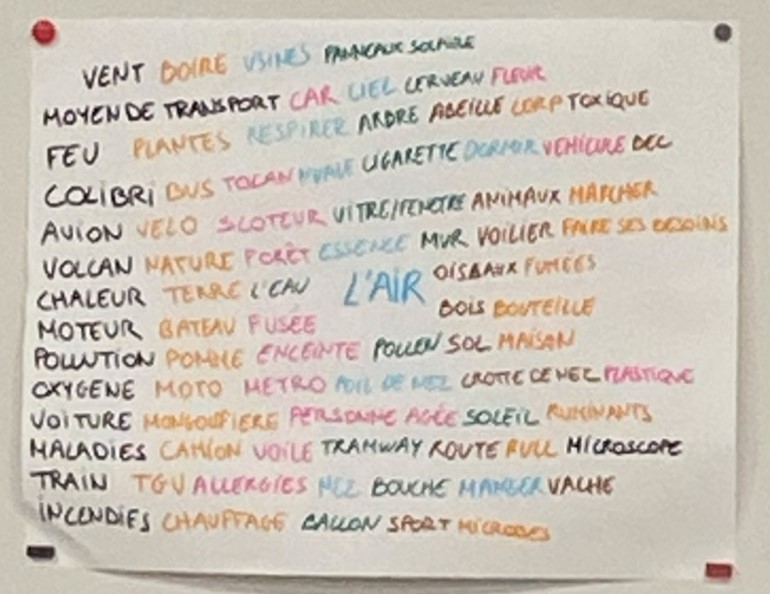 VENT BOIRE USINES PANNEAUX SOLAIRE
MOYEN DE TRANSPORT CAR CIEL CERVEAU FLEUR
FEU PLANTES RESPIRER ARBRE ABEILLE CORP TOXIQUE
COLIBRI BUS TOCAN NUAGE CIGARETTE DORMIR VEHICULE BEC
AVION VELO SCOTEUR VITRE/FENETRE ANIMAUX MARCHER
VOLCAN NATURE FORÊT ESSENCE MUR VOILIER FAIRE SES BESOINS
CHALEUR TERRE L'EAU L'AIR OISEAUX FUMÉES
MOTEUR BATEAU FUSÉE BOIS BOUTEILLE
POLLUTION POMME ENCEINTE POLLEN SOL MAISON
OXYGENE MOTO METRO POIL DE NEZ CROTTE DE NEZ PLASTIQUE
VOITURE MONGOLFIERE PERSONNE AGÉE SOLEIL RUMINANTS
MALADIES CAMION VOILE TRAMWAY ROUTE PULL MICROSCOPE
TRAIN TGV ALLERGIES NEZ BOUCHE MANGER VACHE
INCENDIES CHAUFFAGE BALLON SPORT MICROBES